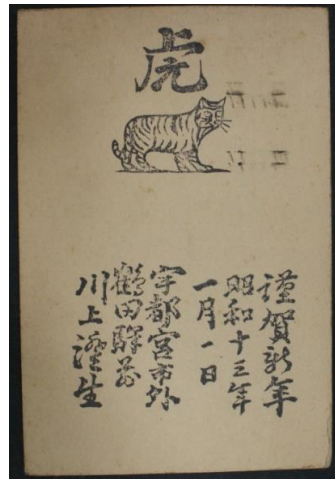 虎
謹賀新年
昭和十三年
一月一日
宇都宮市外
鶴田驛前
川上澄生